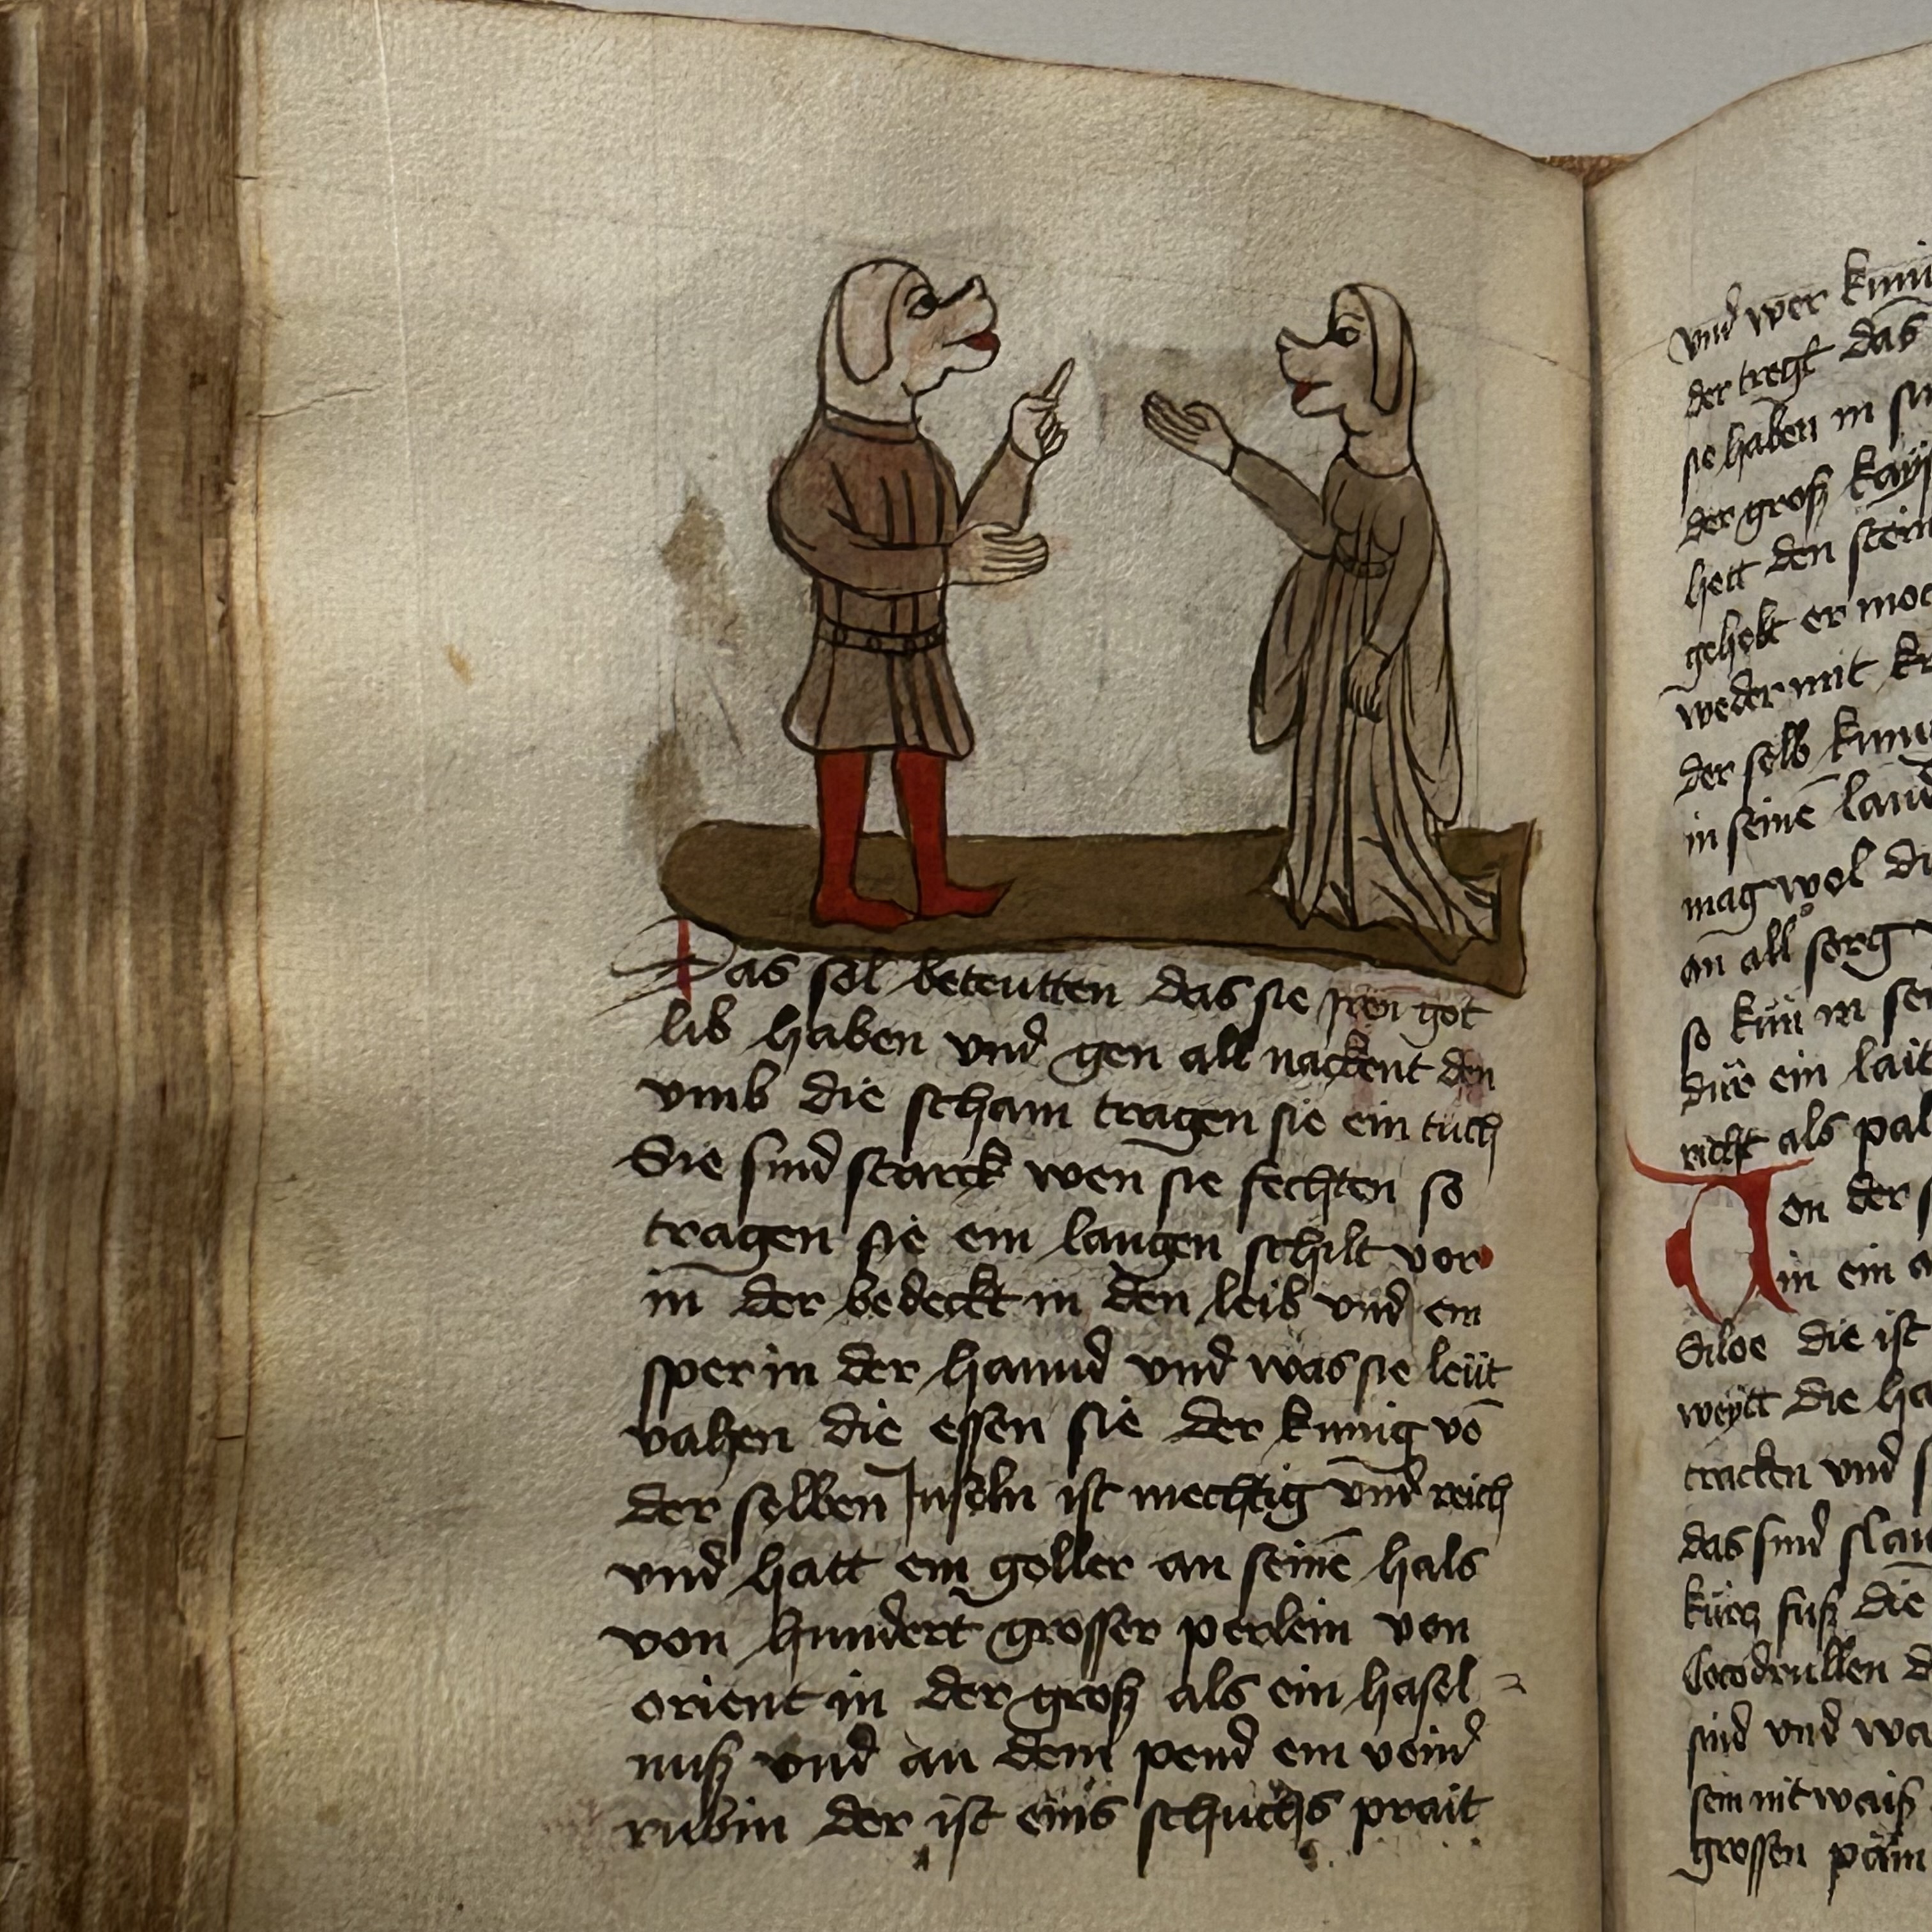 Das sol beteutten das sie iren got
lib haben vnd gen all nackent den
vmb die scham tragen sie ein tuch
Sie sind starck wen sie fechten so
tragen sie ein langen schilt vor
in der bedeckt in den leib vnd ein
sper in der hannd vnd was sie leüt
vahen die essen sie der kunig vō
der selben Inseln ist mechtig vnd reich
vnd hatt ein goller an seinē hals
von hundert grosser perlein von
orient in der groß als ein hasel
nuß vnd an dem pend ein
rubin der ist eins schuchs prait
vnd wer
der tregt das
sie haben in
der groß
hett den stein
gehebt er
weder mit
der selb
in seinē
mag wol
an all sorg
so in
ein
als
Von der
in ein
Siloe die ist
weytt die
tracken vnd
das sind
fuß die
Cocodrillen
sind vnd
sein nit waiß
grossen